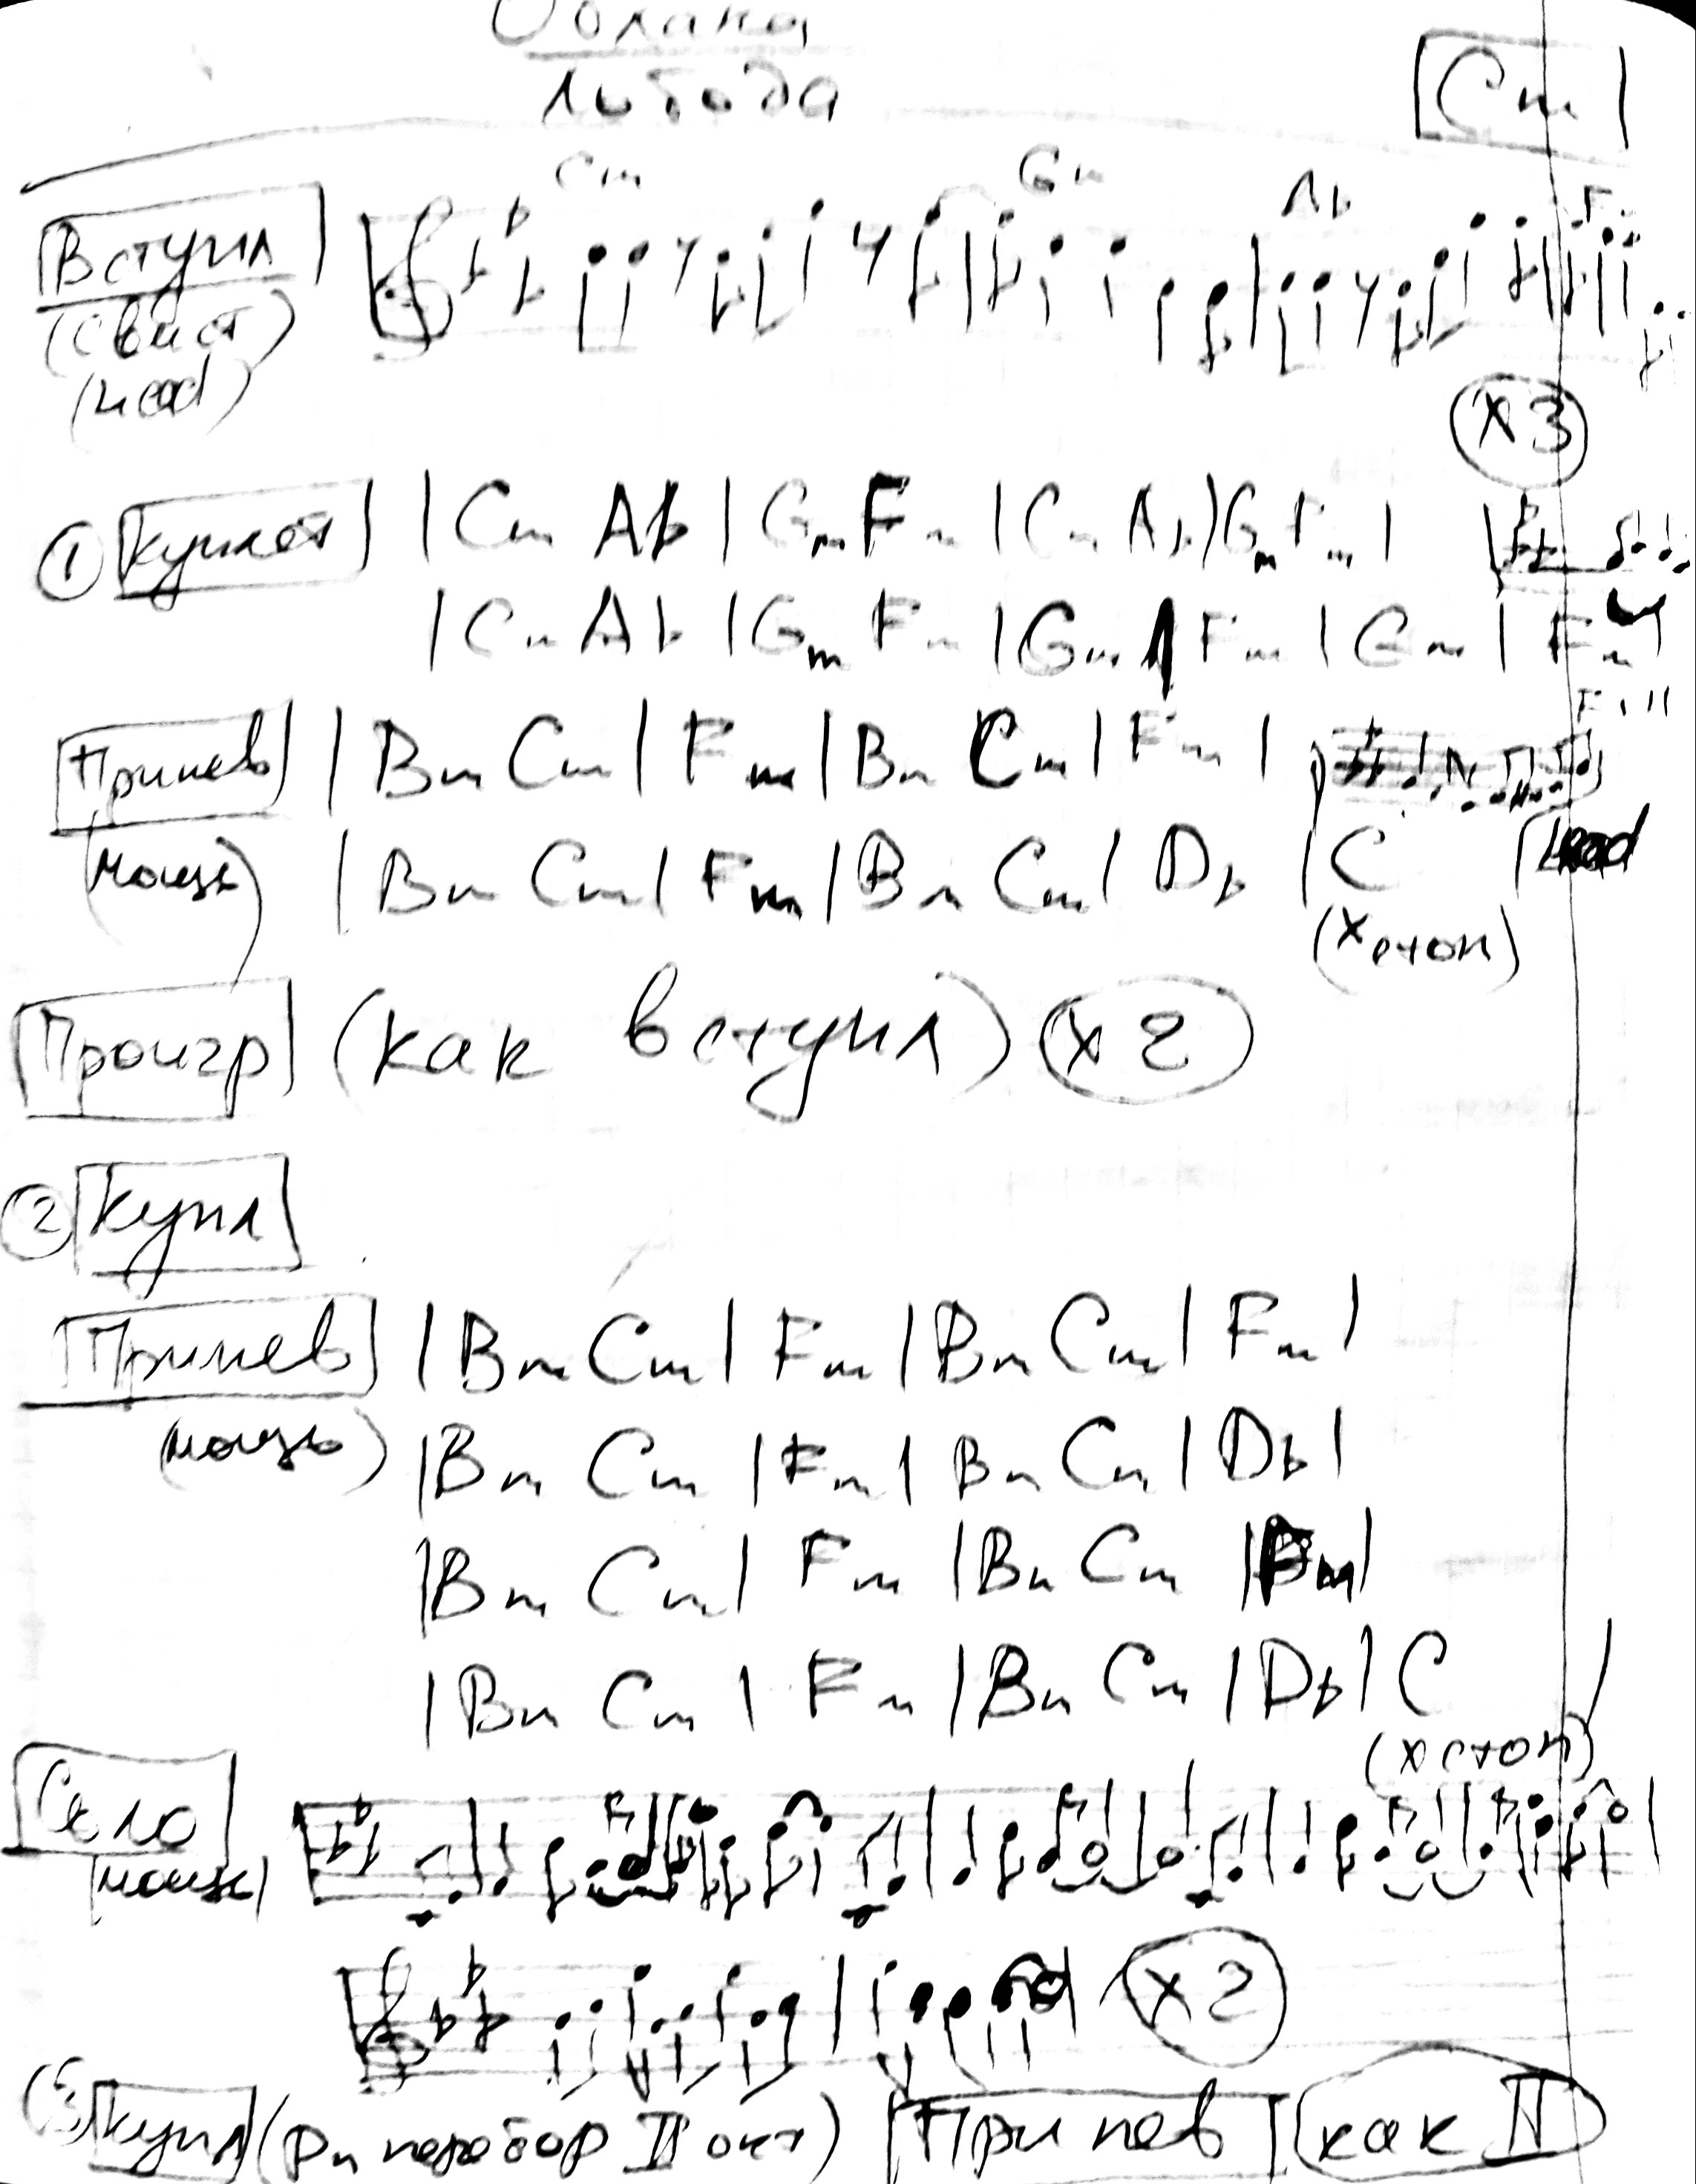 Облака
Лобода
Cm
Cm Gm Ab F
Вступл
(свист)
(Lead)
x3
① Куплет | Cm Ab | Gm Fm | Cm Ab | Gm Fm |
| Cm Ab | Gm Fm | Gm | Fm | Gm | Fm |
Fill
Припев | Bm Cm | Fm | Bm Cm | Fm |
(мощь) | Bm Cm | Fm | Bm Cm | Db | C Lead
(x стоп)
Проигр (как вступл) x2
② Купл
Припев | Bm Cm | Fm | Bm Cm | Fm |
(мощь) | Bm Cm | Fm | Bm Cm | Db |
| Bm Cm | Fm | Bm Cm | Fm |
| Bm Cm | Fm | Bm Cm | Db | C
(x стоп)
Соло
(мощь)
x2
③ Купл (Pn перебор II окт) Припев (как II)